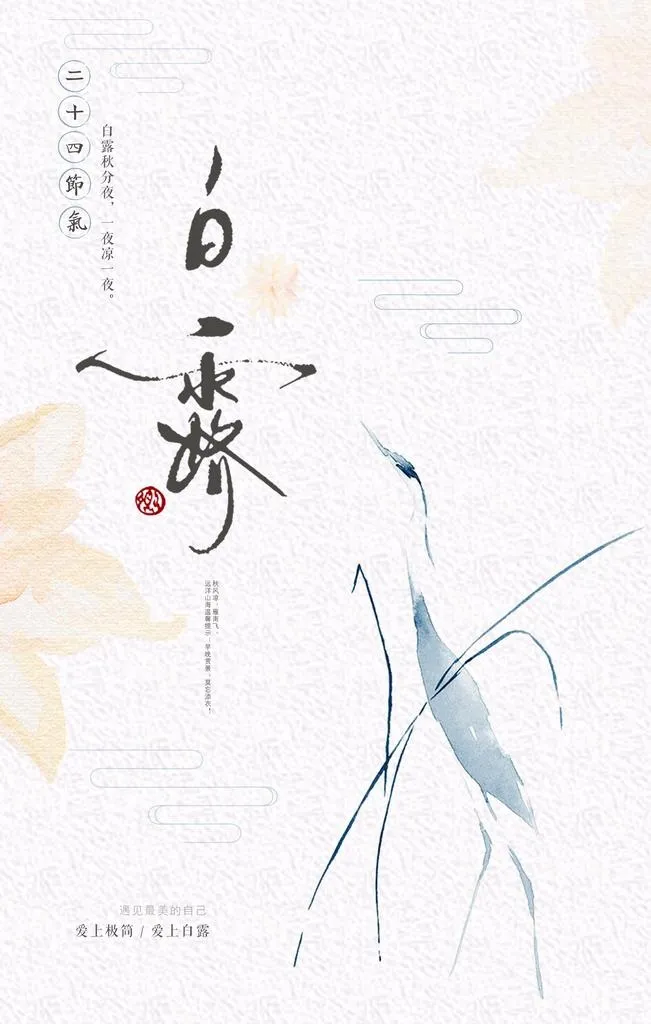 二十四節氣
白露秋分夜，一夜凉一夜。
白露
秋风凉，雁南飞，
远洋山海温馨提示：早晚赏景，莫忘添衣！
遇见最美的自己
爱上极简 / 爱上白露